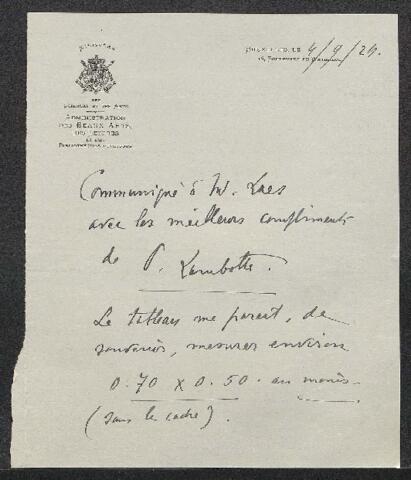 MINISTÈRE
DES
SCIENCES ET DES ARTS
ADMINISTRATION
DES BEAUX-ARTS,
DES LETTRES
ET DES
BRUXELLES, LE 4/9/24.
Communiqué à M. Laes
avec les meilleurs compliments
de P. Lambotte.
Le tableau me paraît, de
souvenir, mesurer environ
0.70 x 0.50. au moins.
(sans le cadre).